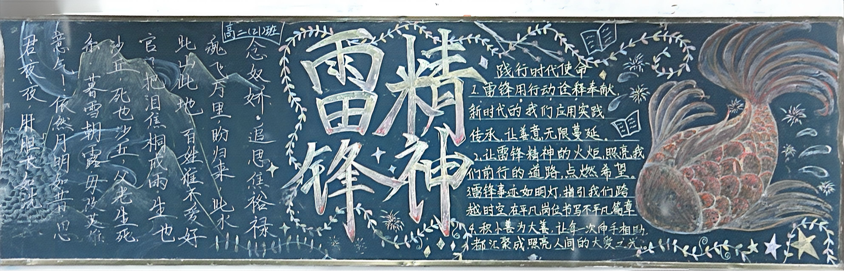 高二(2)班
念奴娇·追思焦裕禄
魂飞万里盼归来 此水
此山此地 百姓谁不爱好
官 把泪焦桐成雨 生也
沙丘 死也沙丘 父老生死
系 暮雪朝霜 毋改英雄
意气 依然月明如昔 思
君夜夜 肝胆长如洗
雷锋精神
践行时代使命
1.雷锋用行动诠释奉献
新时代的我们应用实践
传承,让善意无限蔓延.
2.让雷锋精神的火炬,照亮我
们前行的道路,点燃希望.
3雷锋事迹如明灯,指引我们跨
越时空,在平凡岗位书写不平凡篇章
4.积小善为大善,让每一次伸手相助,
都汇聚成照亮人间的大爱之光